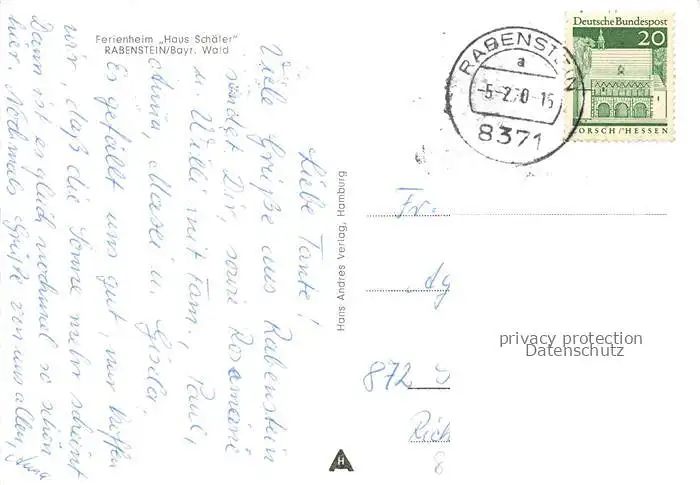 Ferienheim „Haus Schäfer"
RABENSTEIN/Bayr. Wald
Liebe Tante!
Viele Grüße aus Rabenstein
sendet Dir, sowie Rosmarie
u. Willi mit Fam., Pauli,
Anna, Maresi u. Gisela.
Es gefällt uns gut, nur hoffen
wir, daß die Sonne mehr scheint
Dann ist es gleich nochmal so schön
hier. Nochmals Grüße von uns allen, Anna
Hans Andres Verlag, Hamburg
H
RABENSTEIN
a
-5-2.70-15
8371
Deutsche Bundespost
20
LORSCH/HESSEN
Fr.
Ag
872 S
Rich
8
privacy protection
Datenschutz